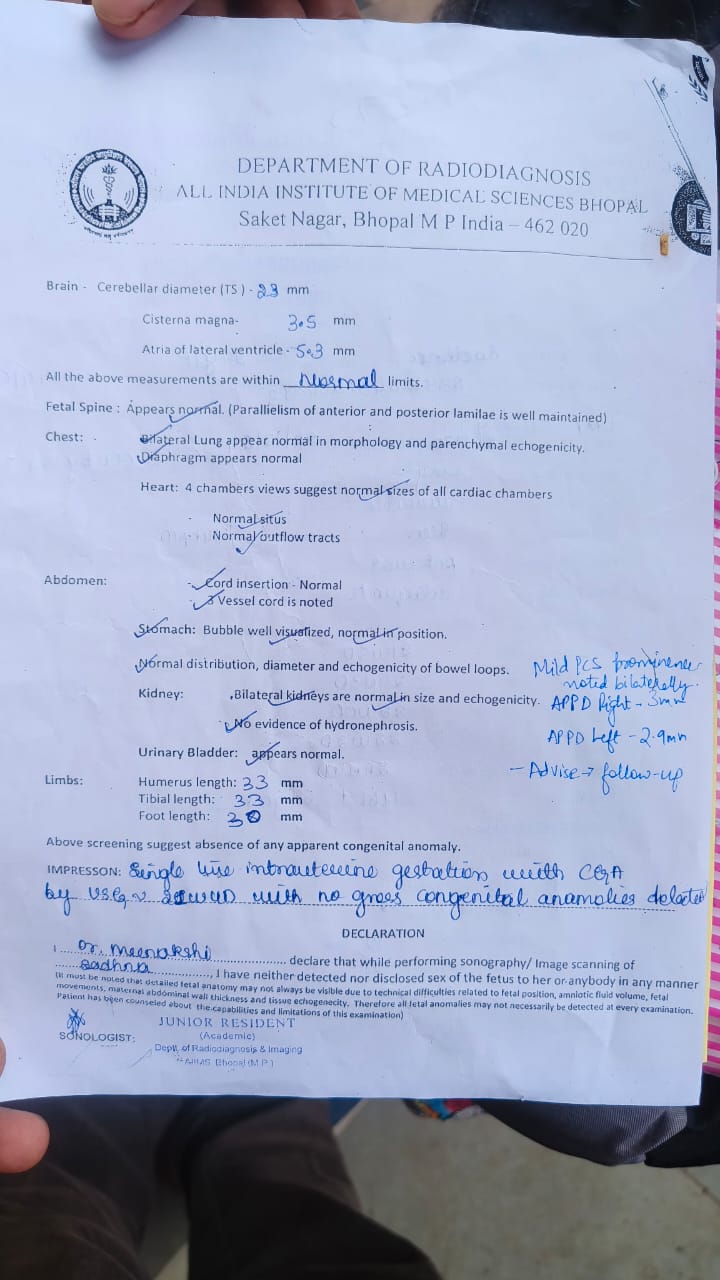 DEPARTMENT OF RADIODIAGNOSIS
ALL INDIA INSTITUTE OF MEDICAL SCIENCES BHOPAL
Saket Nagar, Bhopal M P India – 462 020
Brain - Cerebellar diameter (TS ) - 23 mm
Cisterna magna- 3.5 mm
Atria of lateral ventricle - 5.3 mm
All the above measurements are within Normal limits.
Fetal Spine : Appears normal. (Parallielism of anterior and posterior lamilae is well maintained)
Chest: - Bilateral Lung appear normal in morphology and parenchymal echogenicity.
Diaphragm appears normal
Heart: 4 chambers views suggest normal sizes of all cardiac chambers
- Normal situs
Normal outflow tracts
Abdomen: - Cord insertion - Normal
- 3 Vessel cord is noted
Stomach: Bubble well visualized, normal in position.
Normal distribution, diameter and echogenicity of bowel loops.
Mild PCS prominence
noted bilaterally.
Kidney: Bilateral kidneys are normal in size and echogenicity.
APPD Right - 3mm
No evidence of hydronephrosis.
APPD Left - 2.9mm
Urinary Bladder: appears normal.
- Advise → follow-up
Limbs: Humerus length: 33 mm
Tibial length: 33 mm
Foot length: mm
Above screening suggest absence of any apparent congenital anomaly.
IMPRESSON: Single live intrauterine gestation with CGA
by USG with no gross congenital anamolies detected
DECLARATION
I Dr. Meenakshi declare that while performing sonography/ Image scanning of
Sadhna, I have neither detected nor disclosed sex of the fetus to her or anybody in any manner
(It must be noted that detailed fetal anatomy may not always be visible due to technical difficulties related to fetal position, amniotic fluid volume, fetal
movements, maternal abdominal wall thickness and tissue echogenecity. Therefore all fetal anomalies may not necessarily be detected at every examination.
Patient has been counseled about the capabilities and limitations of this examination)
JUNIOR RESIDENT
SONOLOGIST: (Academic)
Deptt. of Radiodiagnosis & Imaging
AIIMS Bhopal (M.P.)